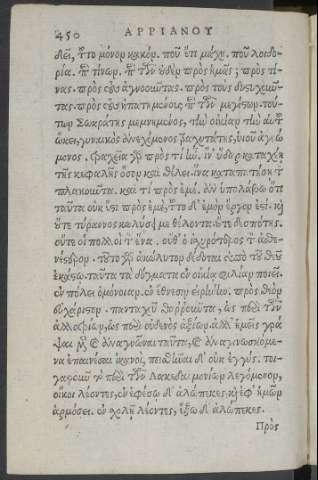 450 ΑΡΡΙΑΝΟΥ
δεῖ, τοῦτο μόνον κακόν. ποῦ ἔτι μάχη. ποῦ λοιδο-
ρία. περὶ τίνων. περὶ τῶν οὐδὲν πρὸς ἡμᾶς; πρὸς τί-
νας. πρὸς τοὺς ἀγνοοῦντας. πρὸς τοὺς δυστυχοῦν-
τας. πρὸς τοὺς ἠπατημένους περὶ τῶν μεγίστων. τού-
των Σωκράτης μεμνημένος, τὴν οἰκίαν τὴν αὑτοῦ
ᾤκει, γυναικὸς ἀνεχόμενος τραχυτάτης, υἱοῦ ἀγνώ-
μονος. τραχεῖα γὰρ πρὸς τί ἦν. ἵν' ὕδωρ καταχέῃ
τῆς κεφαλῆς ὅσον καὶ θέλει. ἵνα καταπατήσῃ τὸν
πλακοῦντα. καὶ τί πρὸς ἐμέ. ἂν ὑπολάβω ὅτι
ταῦτα οὐκ ἔστι πρὸς ἐμέ, τοῦτο δ' ἐμὸν ἔργον ἐστί. καὶ
οὔτε τύραννος κωλύσει με θέλοντα. οὔτε δεσπότης.
οὔτε οἱ πολλοὶ τὸν ἕνα. οὔθ' ὁ ἰσχυρότερος τὸν ἀσθε-
νέστερον. τοῦτο γὰρ ἀκώλυτον δέδοται ὑπὸ τοῦ θεοῦ
ἑκάστῳ. ταῦτα τὰ δόγματα ἐν οἰκίᾳ φιλίαν ποιεῖ.
ἐν πόλει ὁμόνοιαν. ἐν ἔθνεσιν εἰρήνην. πρὸς θεὸν
εὐχάριστον. πανταχοῦ θαρροῦντα, ὡς περὶ τῶν
ἀλλοτρίων, ὡς περὶ οὐδενὸς ἀξίων. ἀλλ' ἡμεῖς γρά-
ψαι μὲν καὶ ἀναγνῶναι ταῦτα, καὶ ἀναγινωσκόμε-
να ἐπαινέσαι ἱκανοί, πεισθῆναι δ' οὐκ ἐγγύς. τοι-
γαροῦν τὸ περὶ τῶν Λακεδαιμονίων λεγόμενον,
οἴκοι λέοντες, ἐν ἐφέσῳ δ' ἀλώπεκες, καὶ ἐφ' ἡμῶν
ἁρμόσει. ἐν σχολῇ λέοντες, ἔξω δ' ἀλώπεκες.
Πρὸς